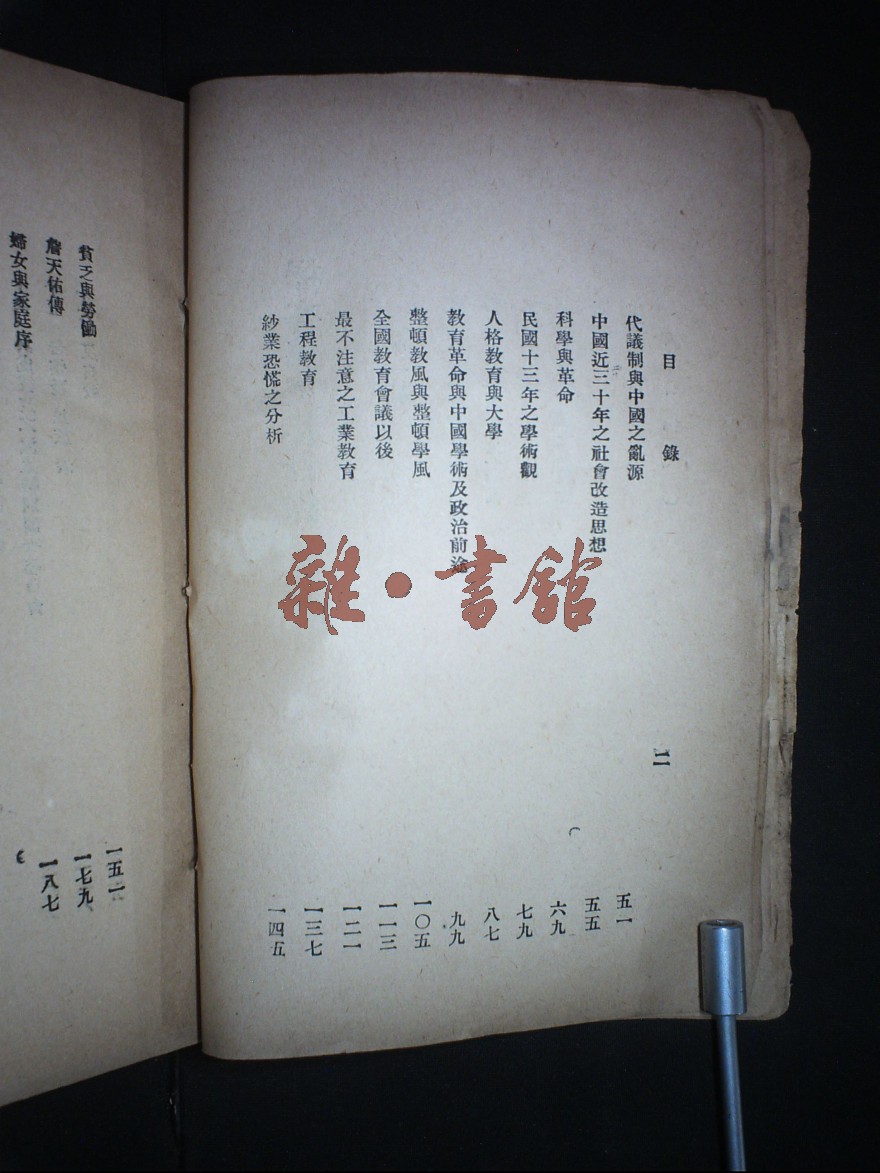 目錄 二
代議制與中國之亂源 五一
中國近三十年之社會改造思想 五五
科學與革命 六九
民國十三年之學術觀 七九
人格教育與大學 八七
教育革命與中國學術及政治前途 九九
整頓教風與整頓學風 一〇五
全國教育會議以後 一一三
最不注意之工業教育 一二一
工程教育 一三七
紗業恐慌之分析 一四五
貧乏與勞働 一五一
詹天佑傳 一七九
婦女與家庭序 一八七
雜·書館